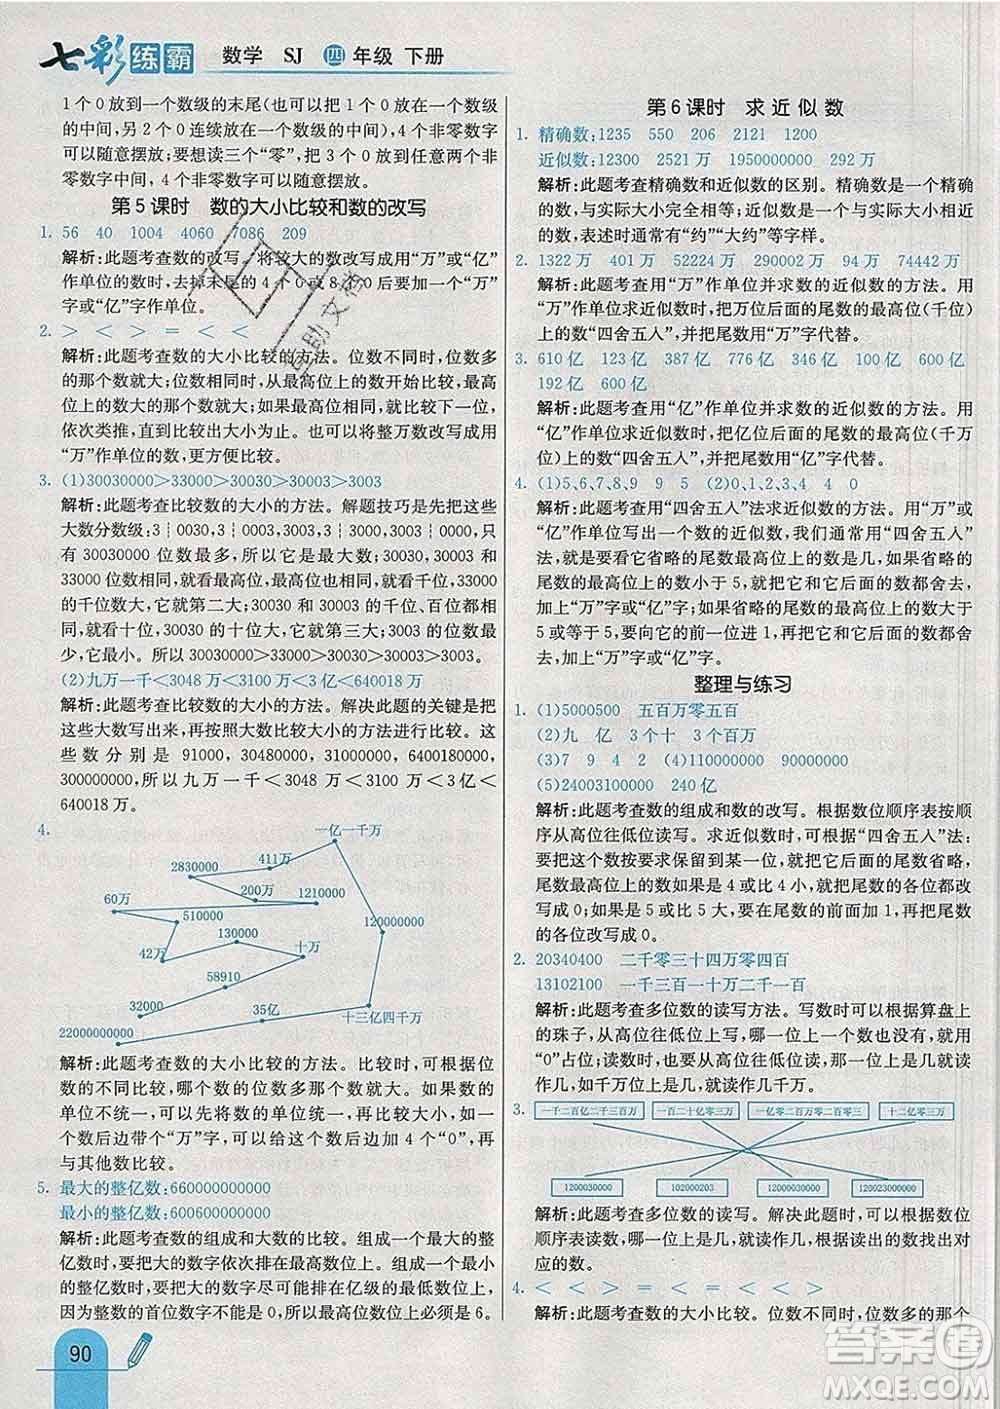 七彩练霸 数学 SJ 四年级 下册
1个0放到一个数级的末尾(也可以放在一个数级
的中间,另2个0连续放在数级的中间),4个非零数字
可以随意摆放;要想读三个“零”,把3个0放到任意两个非
零数字中间,4个非零数字可以随意摆放。
第5课时 数的大小比较和数的改写
1. 56 40 1004 4060 7086 209
解析:此题考查数的改写。将较大的数改写成用“万”或“亿”
作单位的数时,去掉末尾的4个0或8个0后要加一个“万”
字或“亿”字作单位。
2. > < > = < <
解析:此题考查数的大小比较的方法。位数不同时,位数多
的数就大;位数相同时,从最高位上的数开始比较,最高位
上的数大的那个数就大;如果最高位上的数相同,就比下一位,
依次类推,直到比较出大小为止。也可以将整万数改写成用
“万”作单位的数,更方便比较。
3. (1)30030000>33000>30030>30003>3003
解析:此题考查比较数的大小的方法。解题技巧是先把这些
大数分数级:3┆0030,3┆0003,3003,3┆3000,3003┆0000,
只有30030000位数最多,所以它是最大数;30030、30003和
33000位数相同,就看最高位,最高位相同,就看千位,33000
的千位数大,故它第二大;30030和30003的千位、百位都相
同,就看十位,30030的十位大,它就第三大;3003的位数最
少,它最小。所以30030000>33000>30030>30003>3003
(2)九万一千<3048万<3300万<3亿<640018万
解析:此题考查比较数的大小的方法。解决此题的关键是把
这些大数写出来,再按照大数比较大小的方法进行比较。这
些数分别是91000,30480000,33000000,6400180000,
300000000,所以九万一千<3048万<3300万<3亿<
640018万。
4.
一亿一千万
411万
2830000
200万
1210000
60万
510000
120000000
130000
42万
十万
58910
32000
35亿
十三亿四千万
22000000000
解析:此题考查数的大小比较的方法。比较时,可根据位
数的不同比较,哪个数的位数多那个数就大。如果数的
单位不统一,可以统一单位后,再比较大小。例如,一个
数后边带个“万”字,可以给这个数后边加4个“0”,再
与其他数比较。
5. 最大的整亿数:660000000000
最小的整亿数:600600000000
解析:此题考查数的组成和大数的比较。组成一个最大的整
亿数时,要把大的数字依次排在最高数位;组成一个最小的整
亿数时,要把大的数字尽可能排在亿级的最低数位上,但是
因为整数的首位数字不能是0,所以最高位数位上必须是6。
90
第6课时 求近似数
1. 精确数:1235 550 206 2121 1200
近似数:12300 2521万 1950000000 292万
解析:此题考查精确数和近似数的区别。精确数是准确的
数,与实际大小完全相等;近似数是一个大约的数,与实际大
小接近,表述时通常用有“约”“大约”等字样。
2. 1322万 201万 52224万 290002万 94万 74442万
解析:此题考查用“万”作单位并求数的近似数的方法。用
“万”作单位求近似数时,把万位后面的尾数的最高位(千位)
上的数“四舍五入”,并把尾数用“万”字代替。
3. 610亿 123亿 387亿 776亿 346亿 100亿
192亿 600亿
解析:此题考查用“亿”作单位并求数的近似数的方法。用
“亿”作单位求近似数时,把亿位后面的尾数的最高位(千万
位)上的数“四舍五入”,并把尾数用“亿”字代替。
4. (1)5、6、7、8、9 (2)0、1、2、3、4
解析:此题考查用“四舍五入”法求近似数。用“万”或“亿”
作单位写出一个数的近似数,我们通常用“四舍五入”
法,就是要看它省略的尾数最高位上的数是几,如果省略
的尾数的最高位上的数小于5,就把它和它后面的数都舍去,
加上“万”字或“亿”字;如果省略的尾数的最高位上的数大于
5或等于5,就向它的前一位进1,再把它和它后面的数舍去,
加上“万”字或“亿”字。
整理与练习
1. (1)5000500 五百万零五百
(2)九 亿 3个十 3个百万
(3)7 9 4 2 (4)110000000 90000000
(5)24003100000 240亿
解析:此题考查数的组成和数的改写。根据数位顺序表按顺
序从高位往低位读写。求近似数时,可根据“四舍五入”法:
要把这个数按要求保留到某一位,就把后面的尾数省略。如果
尾数最高位上的数如果是4或比4小,就把尾数的各位都改
写成0;如果是5或比5大,要在尾数的前面加进1,再把尾数
的各位改写成0。
2. 20340400 二千零三十四万零四百
13102100 一千三百一十万二千一百
解析:此题考查多位数的读写方法。写数时可以根据算盘上
的珠子,从高位往低位上写,哪一位上一个数也没有,就用
“0”占位;读数时,从高位往低位上读,哪一位上是几就读
作几,如千万位上是几,就读作几千万。
3. 一千二百亿二千三百万 一百二十亿零三万 一亿零二百万零二百零三 十二亿零三万
1200030000 102000203 120023000000
解析:此题考查多位数的读写。解决此题时,可以根据数位
顺序表读数,一位一位对照读几,就写几,再找出与读数对
应的数。
4. < < > = < = < >
解析:此题考查数的大小比较。位数不同时,位数多的那个
答案圈
MXQE.COM